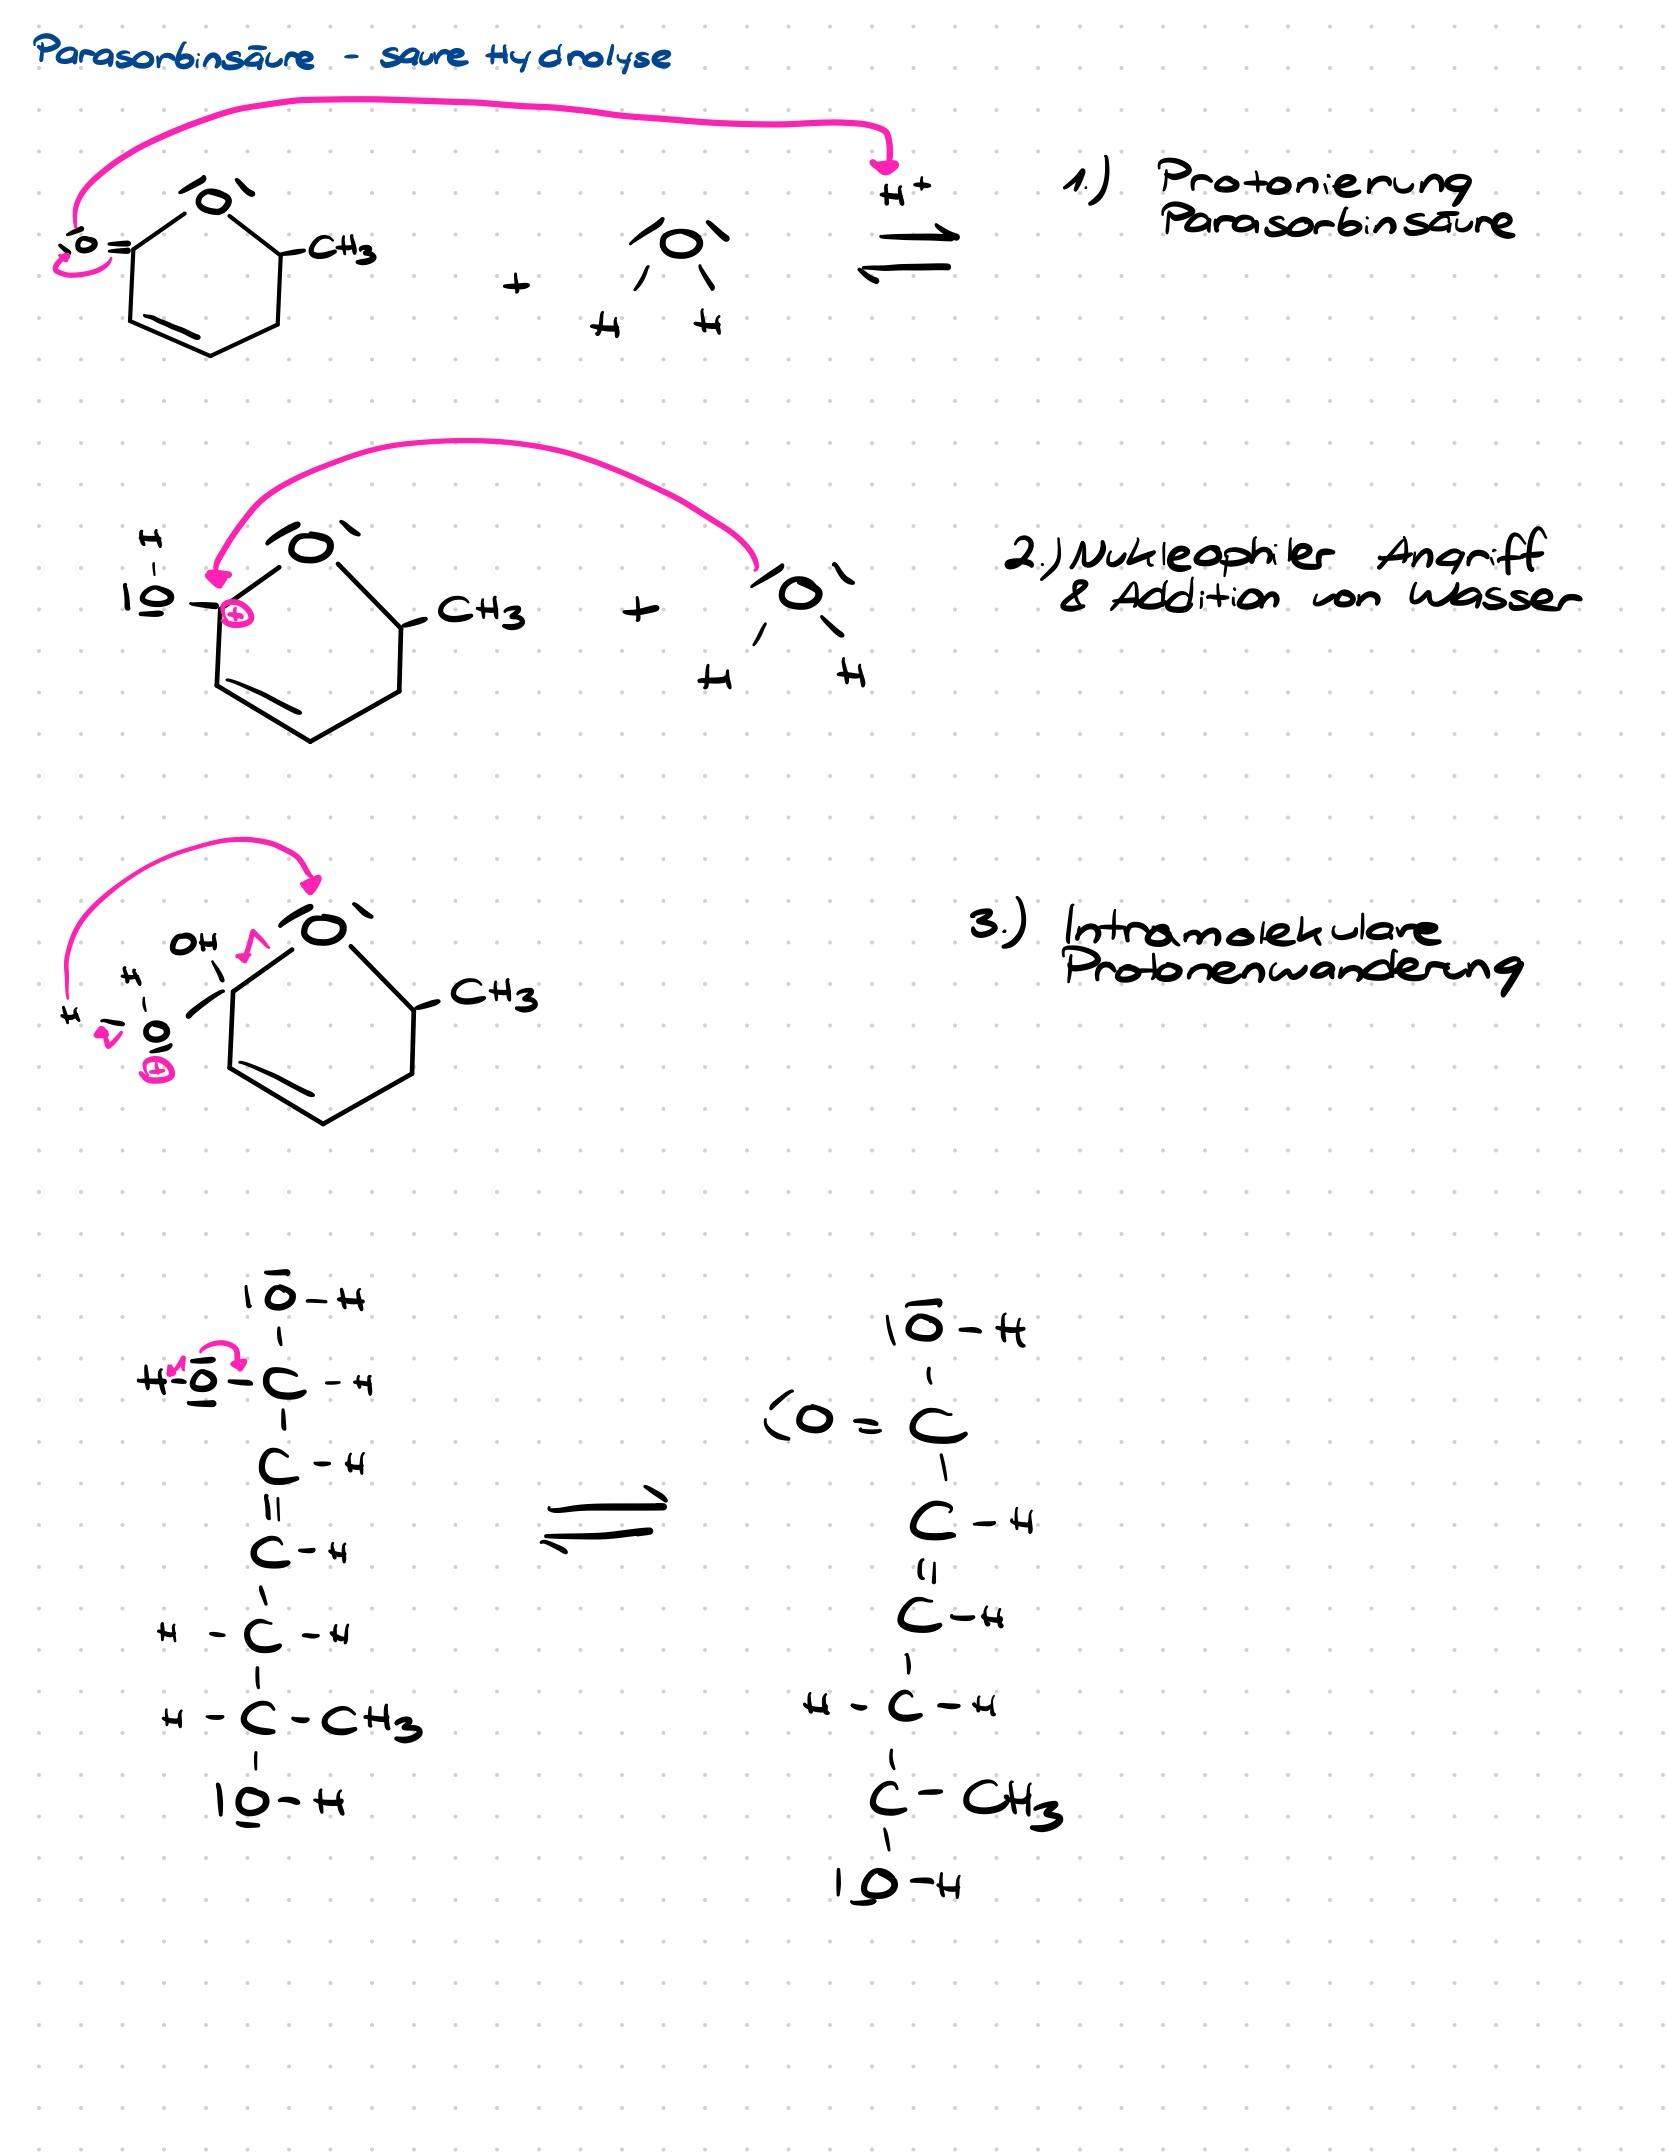 Parasorbinsäure - saure Hydrolyse
H+
1.) Protonierung
Parasorbinsäure
O
O = CH3
+ O
H H
2.) Nukleophiler Angriff
& Addition von Wasser
H
O
|O - + CH3 + O
H H
3.) Intramolekulare
Protonenwanderung
O
OH
H
H - O CH3
+
|O - H
H - O - C - H
C - H
||
C - H
H - C - H
H - C - CH3
|O - H
|O - H
O = C
C - H
||
C - H
H - C - H
C - CH3
|O - H